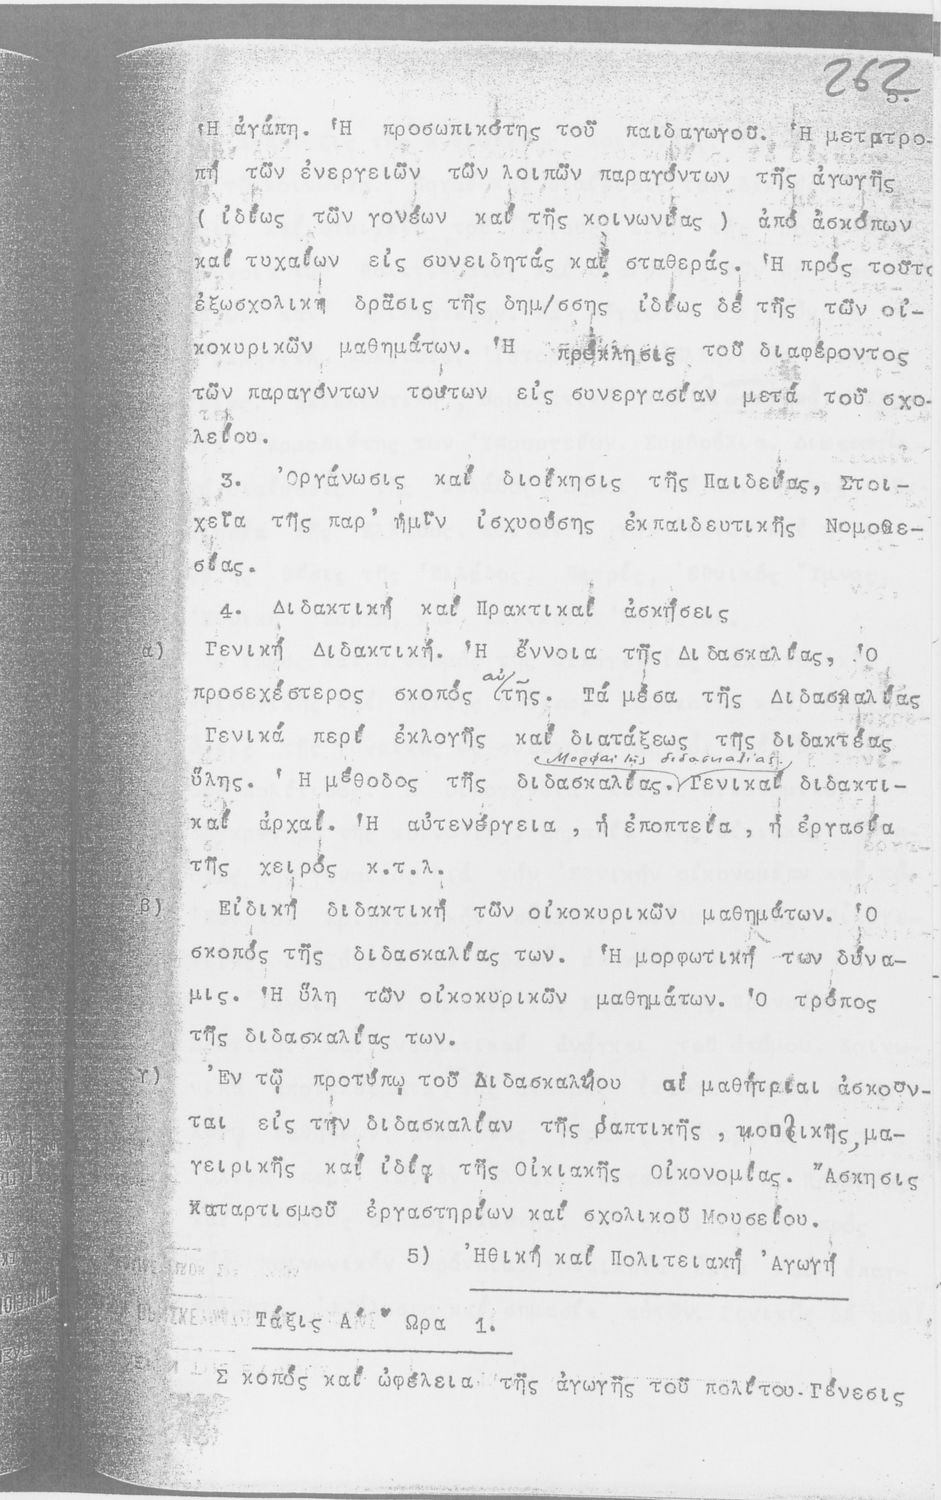 262
5.
Ἡ ἀγάπη. Ἡ προσωπικότης τοῦ παιδαγωγοῦ. Ἡ μετατρο-
πή τῶν ἐνεργειῶν τῶν λοιπῶν παραγόντων τῆς ἀγωγῆς
( ἰδίως τῶν γονέων καί τῆς κοινωνίας ) ἀπό ἀσκόπων
καί τυχαίων εἰς συνειδητάς καί σταθεράς. Ἡ πρός τοῦτο
ἐξωσχολική δρᾶσις τῆς δημ/σσης ἰδίως δέ τῆς τῶν οἰ-
κοκυρικῶν μαθημάτων. Ἡ πρόκλησις τοῦ διαφέροντος
τῶν παραγόντων τούτων εἰς συνεργασίαν μετά τοῦ σχο-
λείου.
3. Ὀργάνωσις καί διοίκησις τῆς Παιδείας, Στοι-
χεῖα τῆς παρ' ἡμῖν ἰσχυούσης ἐκπαιδευτικῆς Νομοθε-
σίας.
4. Διδακτική καί Πρακτικαί ἀσκήσεις
α) Γενική Διδακτική. Ἡ ἔννοια τῆς Διδασκαλίας, Ὁ
προσεχέστερος σκοπός αὐτῆς. Τά μέσα τῆς Διδασκαλίας
Γενικά περί ἐκλογῆς καί διατάξεως τῆς διδακτέας
Μορφαί τῆς διδασκαλίας
ὕλης. Ἡ μέθοδος τῆς διδασκαλίας. Γενικαί διδακτι-
καί ἀρχαί. Ἡ αὐτενέργεια , ἡ ἐποπτεία , ἡ ἐργασία
τῆς χειρός κ.τ.λ.
β) Εἰδική διδακτική τῶν οἰκοκυρικῶν μαθημάτων. Ὁ
σκοπός τῆς διδασκαλίας των. Ἡ μορφωτική των δύνα-
μις. Ἡ ὕλη τῶν οἰκοκυρικῶν μαθημάτων. Ὁ τρόπος
τῆς διδασκαλίας των.
γ) Ἐν τῷ προτύπῳ τοῦ Διδασκαλίου αἱ μαθήτριαι ἀσκοῦν-
ται εἰς τήν διδασκαλίαν τῆς ῥαπτικῆς , κοπτικῆς, μα-
γειρικῆς καί ἰδίᾳ τῆς Οἰκιακῆς Οἰκονομίας. Ἄσκησις
Καταρτισμοῦ ἐργαστηρίων καί σχολικοῦ Μουσείου.
5) Ἠθική καί Πολιτειακή Ἀγωγή
Τάξις Α΄ Ὥρα 1.
Σκοπός καί ὠφέλεια τῆς ἀγωγῆς τοῦ πολίτου. Γένεσις